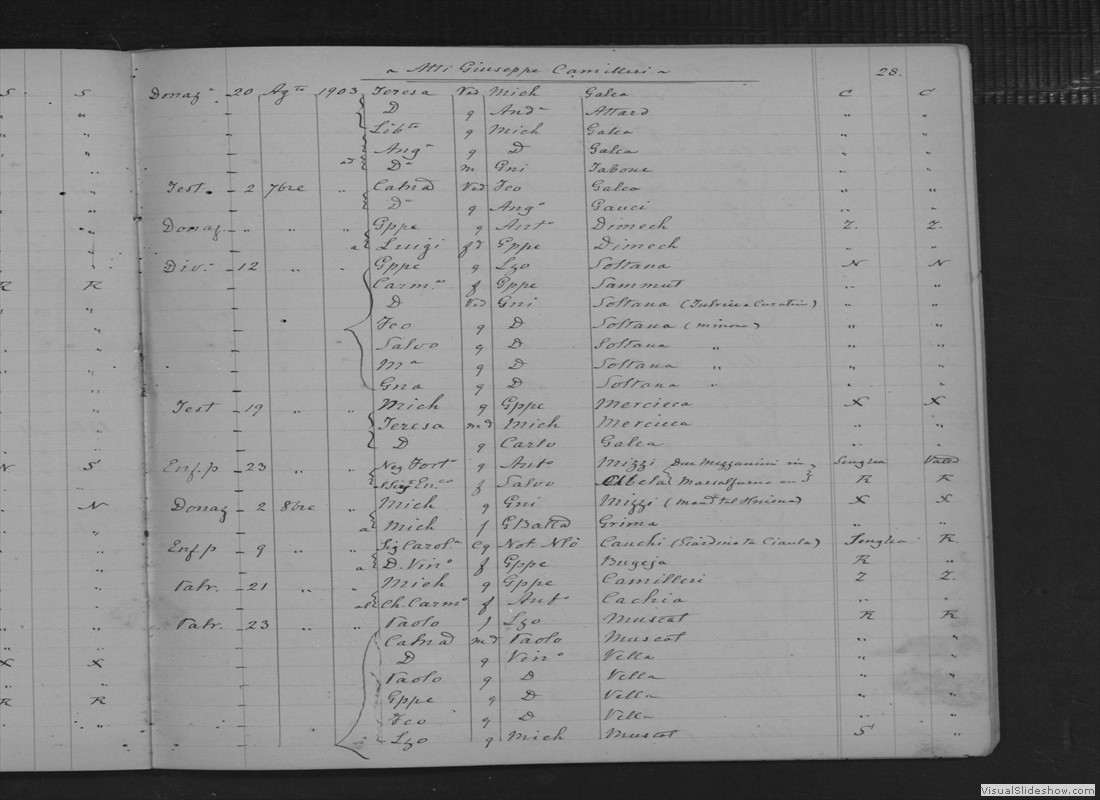 Atti Giuseppe Camilleri 28.
S S Donaz. 20 Agto 1903 Teresa Ved Mich Galea C C
" D g And Attard " "
" Libta g Mich Galea " "
" Anga g D Galea " "
" D m Gni Tabone " "
" Test. 2 7bre " Catna Ved Fco Galea " "
" D g Ango Gauci " "
" Donaz " " " Gppe g Anto Dimech Z. Z.
" Luigi fd Gppe Dimech " "
" Div. 12 " " Gppe g Lzo Soltana N N
R R Carma f Gppe Sammut " "
" D Ved Gni Soltana " "
" Fco g D Soltana (minore) " "
" Salvo g D Soltana " " "
" Ma g D Soltana " " "
" Gna g D Soltana " " "
" Test 19 " " Mich g Gppe Mercieca X X
" Teresa md Mich Mercieca " "
" D g Carlo Galea " "
N S Enf.p 23 " " Neg Forto g Anto Mizzi Due Mezzanini in Senglea
" f Salvo R R
N Donaz 2 8bre " Mich g Gni Mizzi X X
" Mich f GBatta Grima " "
" Enf p 9 " " Sig Carola Cg Not Nlò Cauchi Senglea R
" D. Vino f Gppe Bugeja R "
" Tatr. 21 " " Mich g Gppe Camilleri Z Z.
" Ch. Carmo f Anto Cachia " "
" Tatr. 23 " " Paolo f Lzo Muscat R R
" Catna md Paolo Muscat " "
X X D g Vino Vella " "
" Paolo g D Vella " "
R R Gppe g D Vella " "
" Fco g D Vella " "
" Lzo g Mich Muscat S "
VisualSlideshow.com